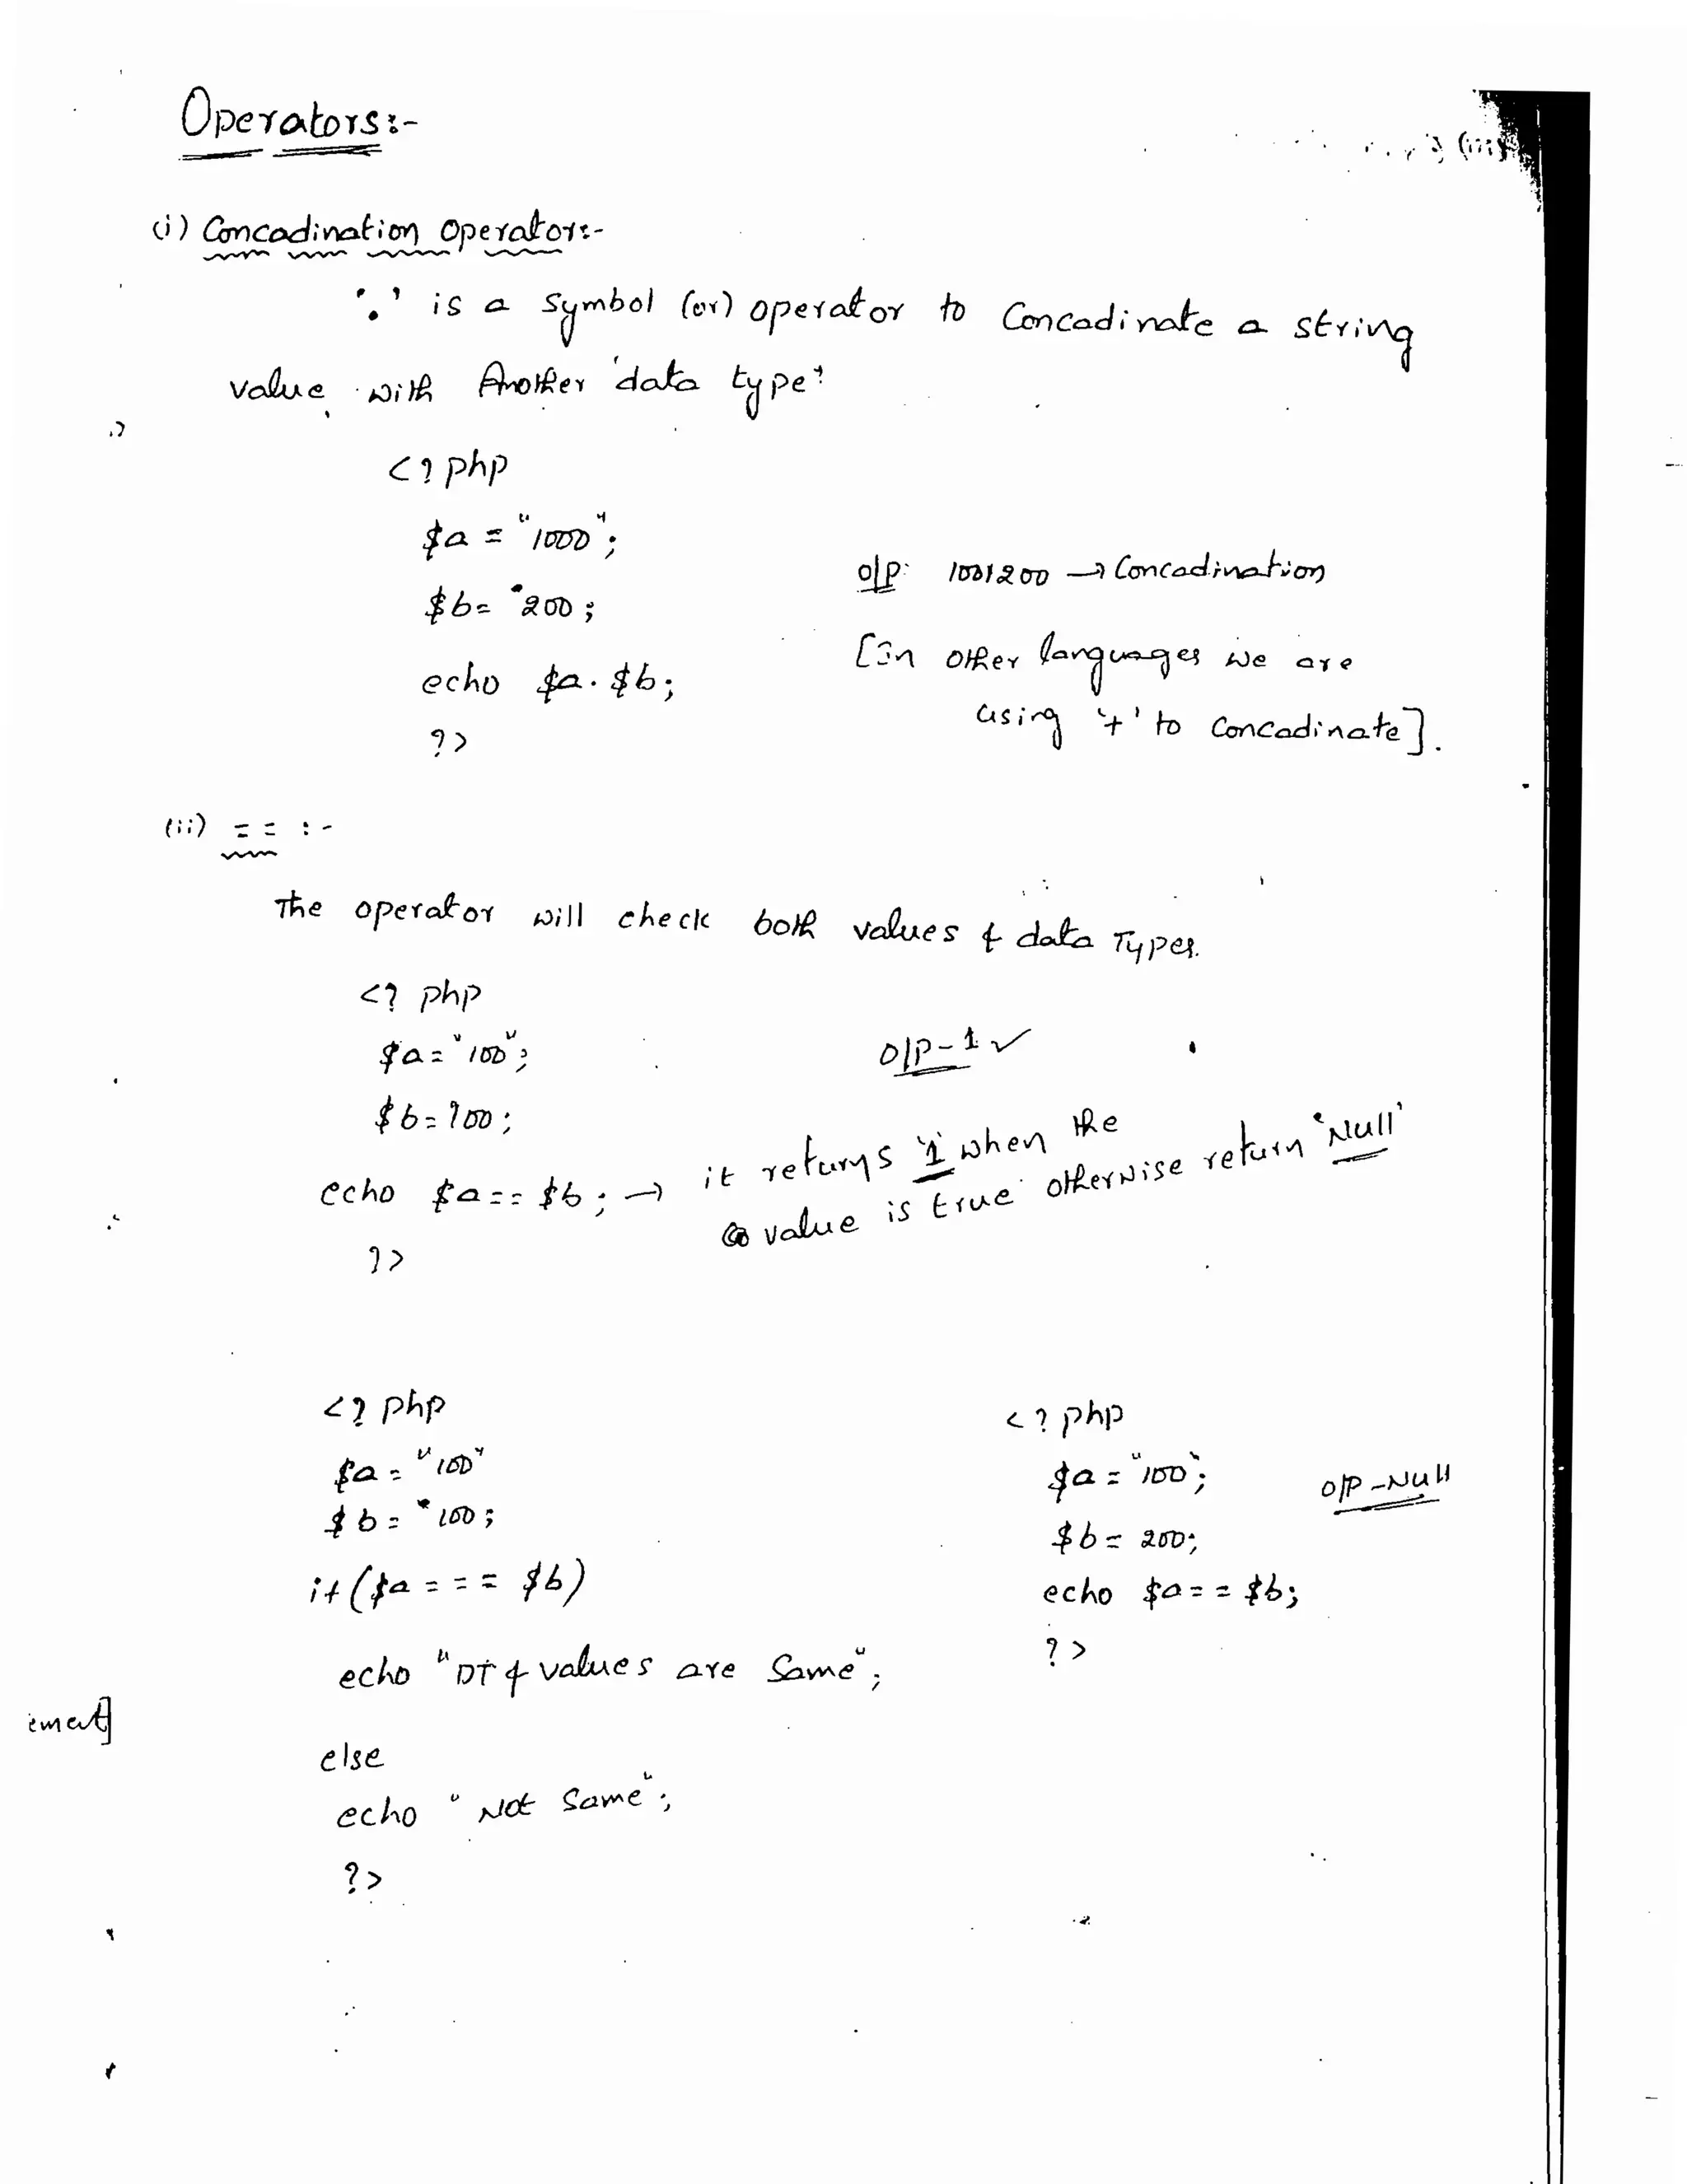 Operators:-
(iii)
(i) Concadination Operator:-
'.' is a symbol (or) operator to Concadinate a string
value with Another data type.
<?php
$a = "1000";
$b= "200;
echo $a.$b;
?>
o/p: 1001200 → Concadination
[In other languages we are
using '+' to Concadinate].
(ii) == :-
The operator will check both values & data Types.
<? php
$a = "100";
$b = 100;
echo $a == $b; → it returns '1' when the
value is true otherwise return 'Null'
?>
o/p - 1 ✓
<? php
$a = "100"
$b = "100;
if ($a === $b)
echo "DT & values are Same";
else
echo "Not Same";
?>
<?php
$a = "100";
$b = 200;
echo $a == $b;
?>
o/p - Null
ement]